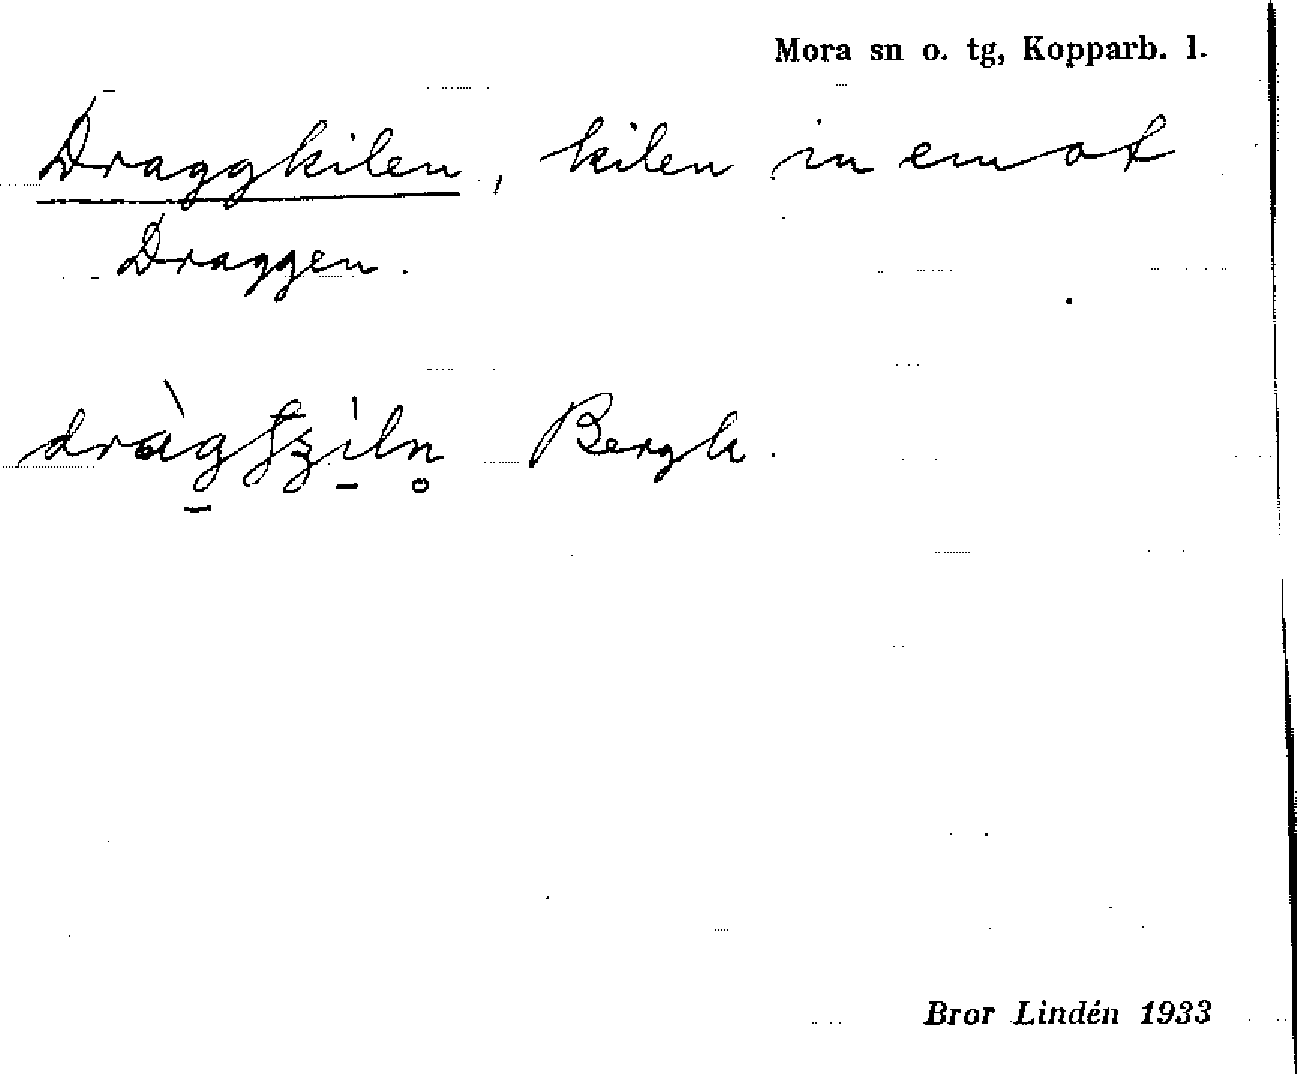 Mora sn o. tg, Kopparb. l.
Draggkilen, kilen in emot
Draggen.
Bergk.
Bror Lindén 1933